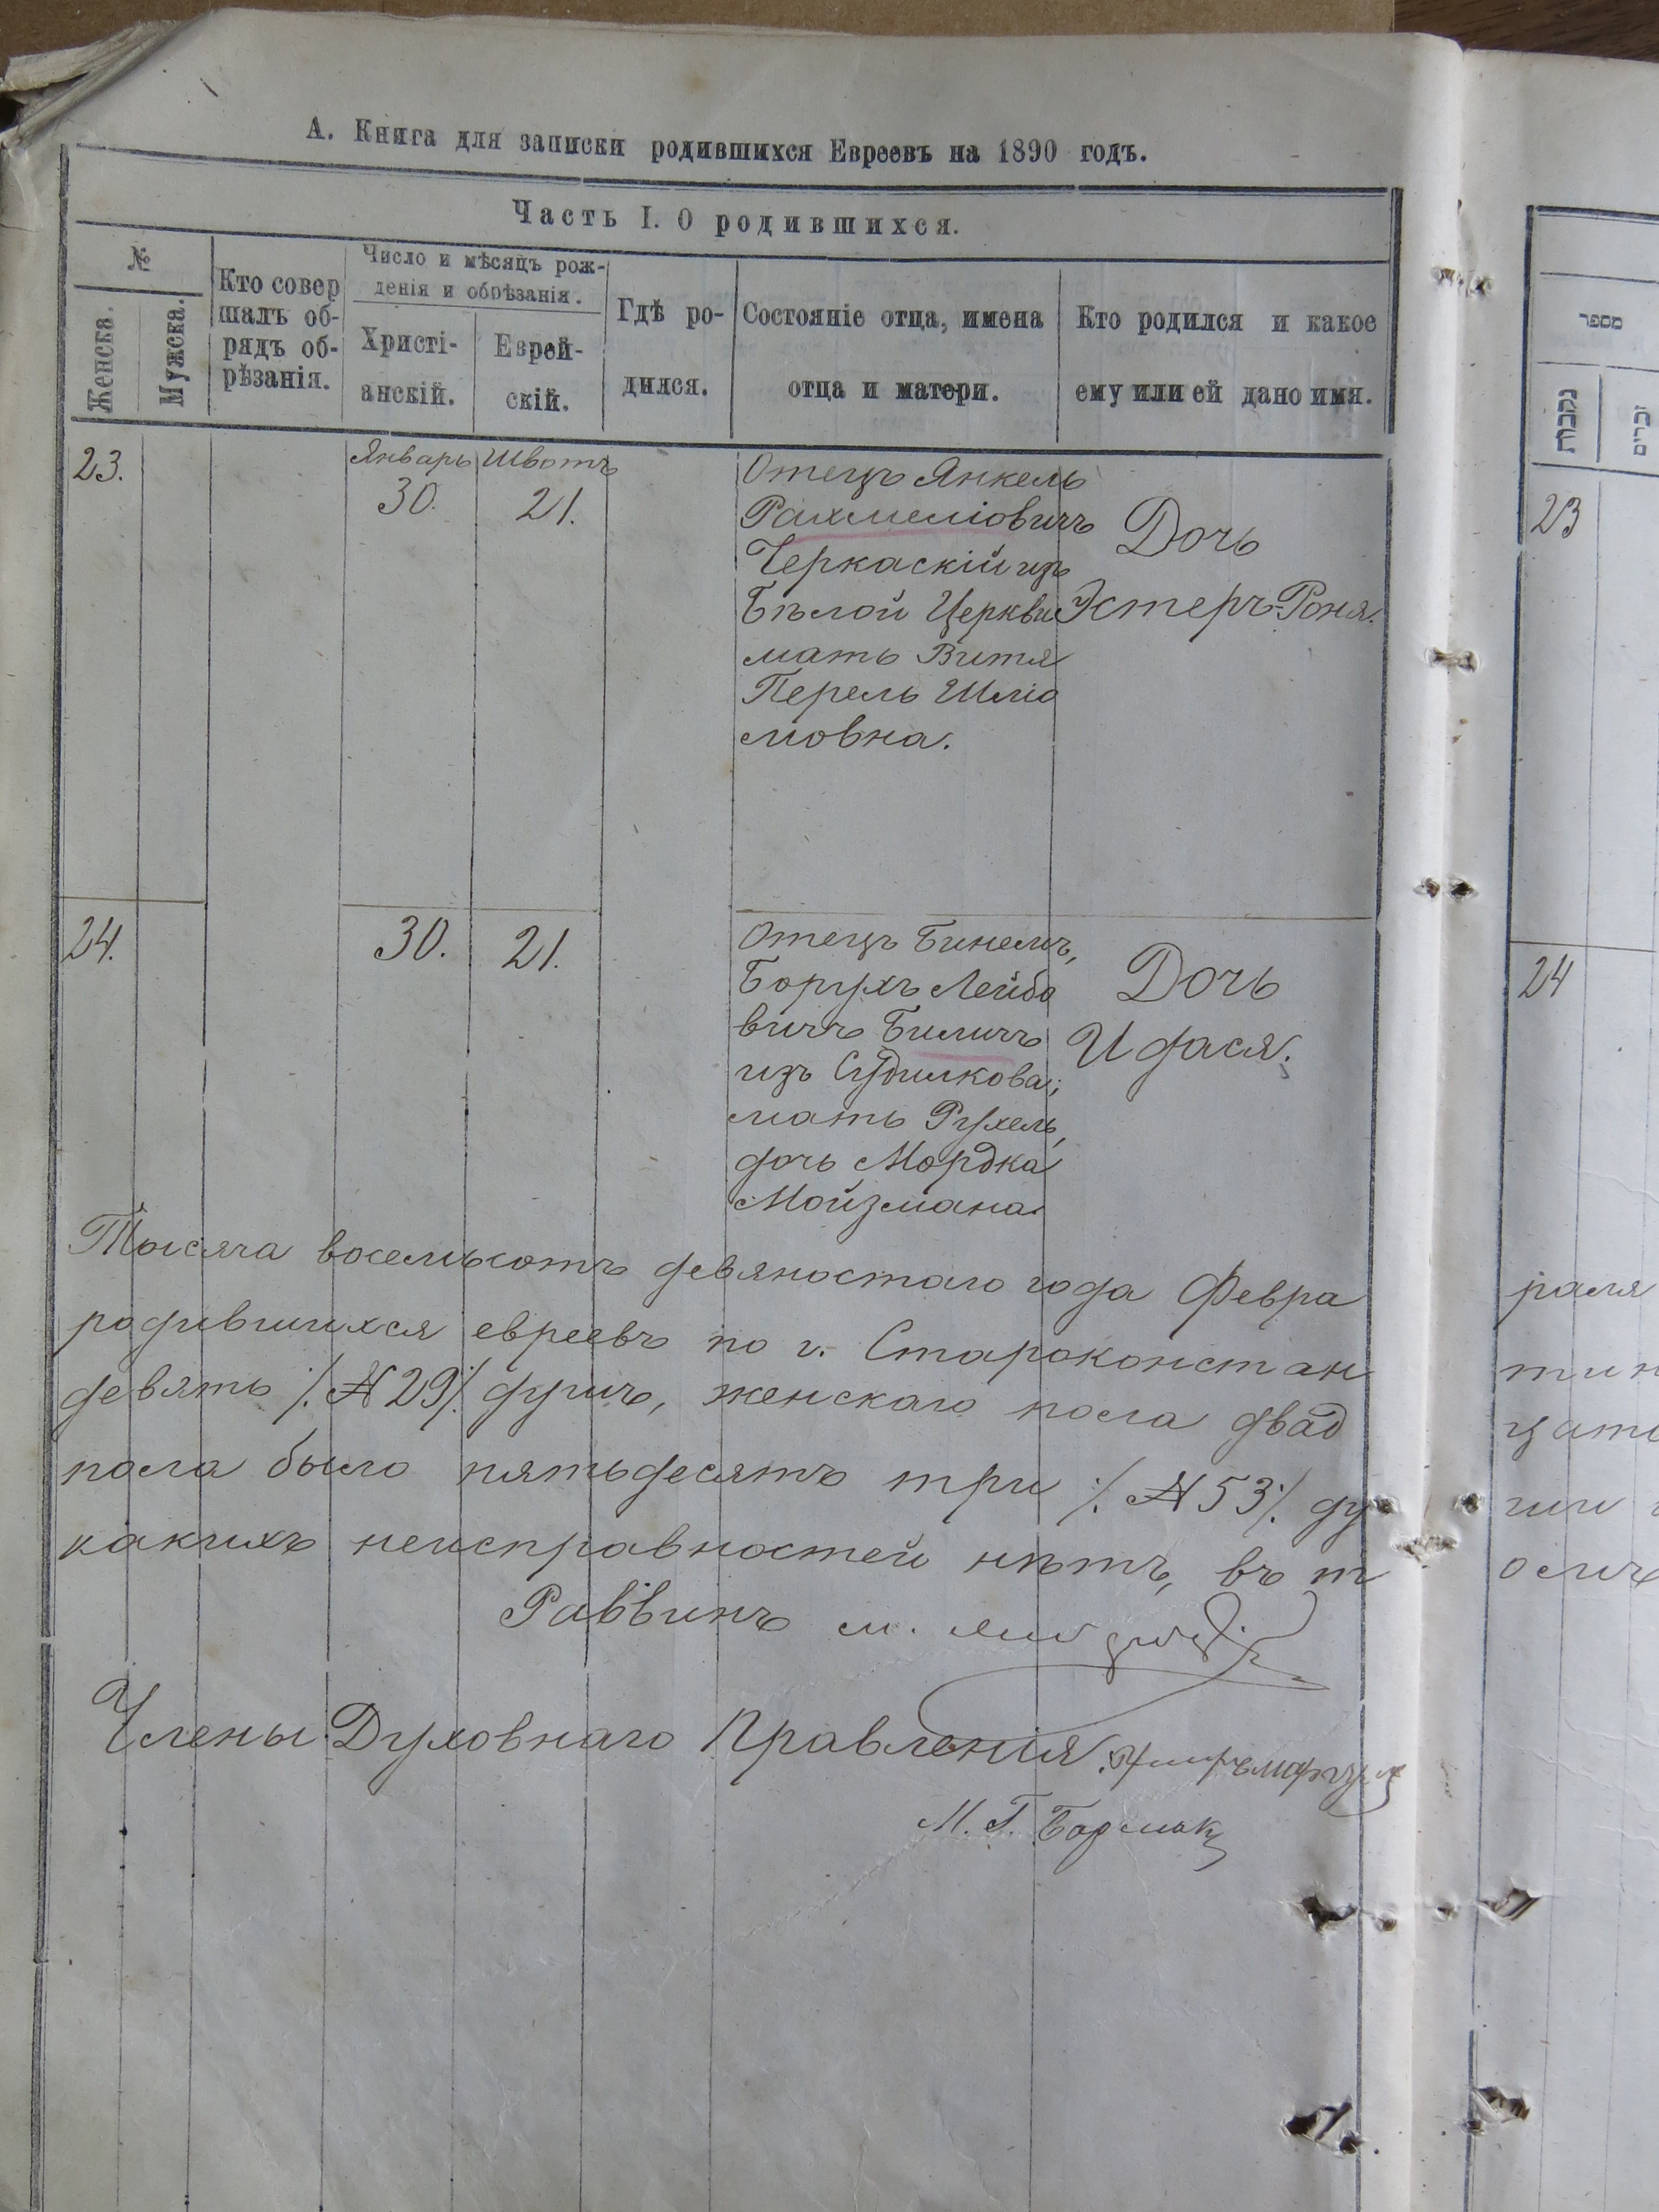 А. Книга для записки родившихся Евреевъ на 1890 годъ.
Часть I. О родившихся.
№
Женска.
Мужска.
Кто совер
шалъ об-
рядъ об-
рѣзанія.
Число и мѣсяцъ рож-
денія и обрѣзанія.
Христі-
анскій.
Еврей-
скій.
Гдѣ ро-
дился.
Состояніе отца, имена
отца и матери.
Кто родился и какое
ему или ей дано имя.
23.
Январь
30.
Швотъ
21.
Отецъ Янкель
Рахмеліовичъ
Черкаскій изъ
Бѣлой Церкви
мать Витя
Перель Шліо
мовна.
Дочь
Эстеръ-Роня.
24.
30.
21.
Отецъ Бинемъ,
Борухъ Лейбо
вичъ Биличъ
изъ Судилкова;
мать Рухель,
дочь Мордка
Мойзмана.
Дочь
Идася.
Тысяча восемьсотъ девяностаго года Февра
родившихся евреевъ по г. Староконстан
девять ·/. № 29 ·/. душъ, женскаго пола двад
пола было пятьдесятъ три ·/. № 53 ·/. ду
какихъ неисправностей нѣтъ, въ т
Раввинъ м.
Члены Духовнаго Правленія
М. Г.
מספר
נקבות
זכרים
23
24
раля
тин
цать
ши